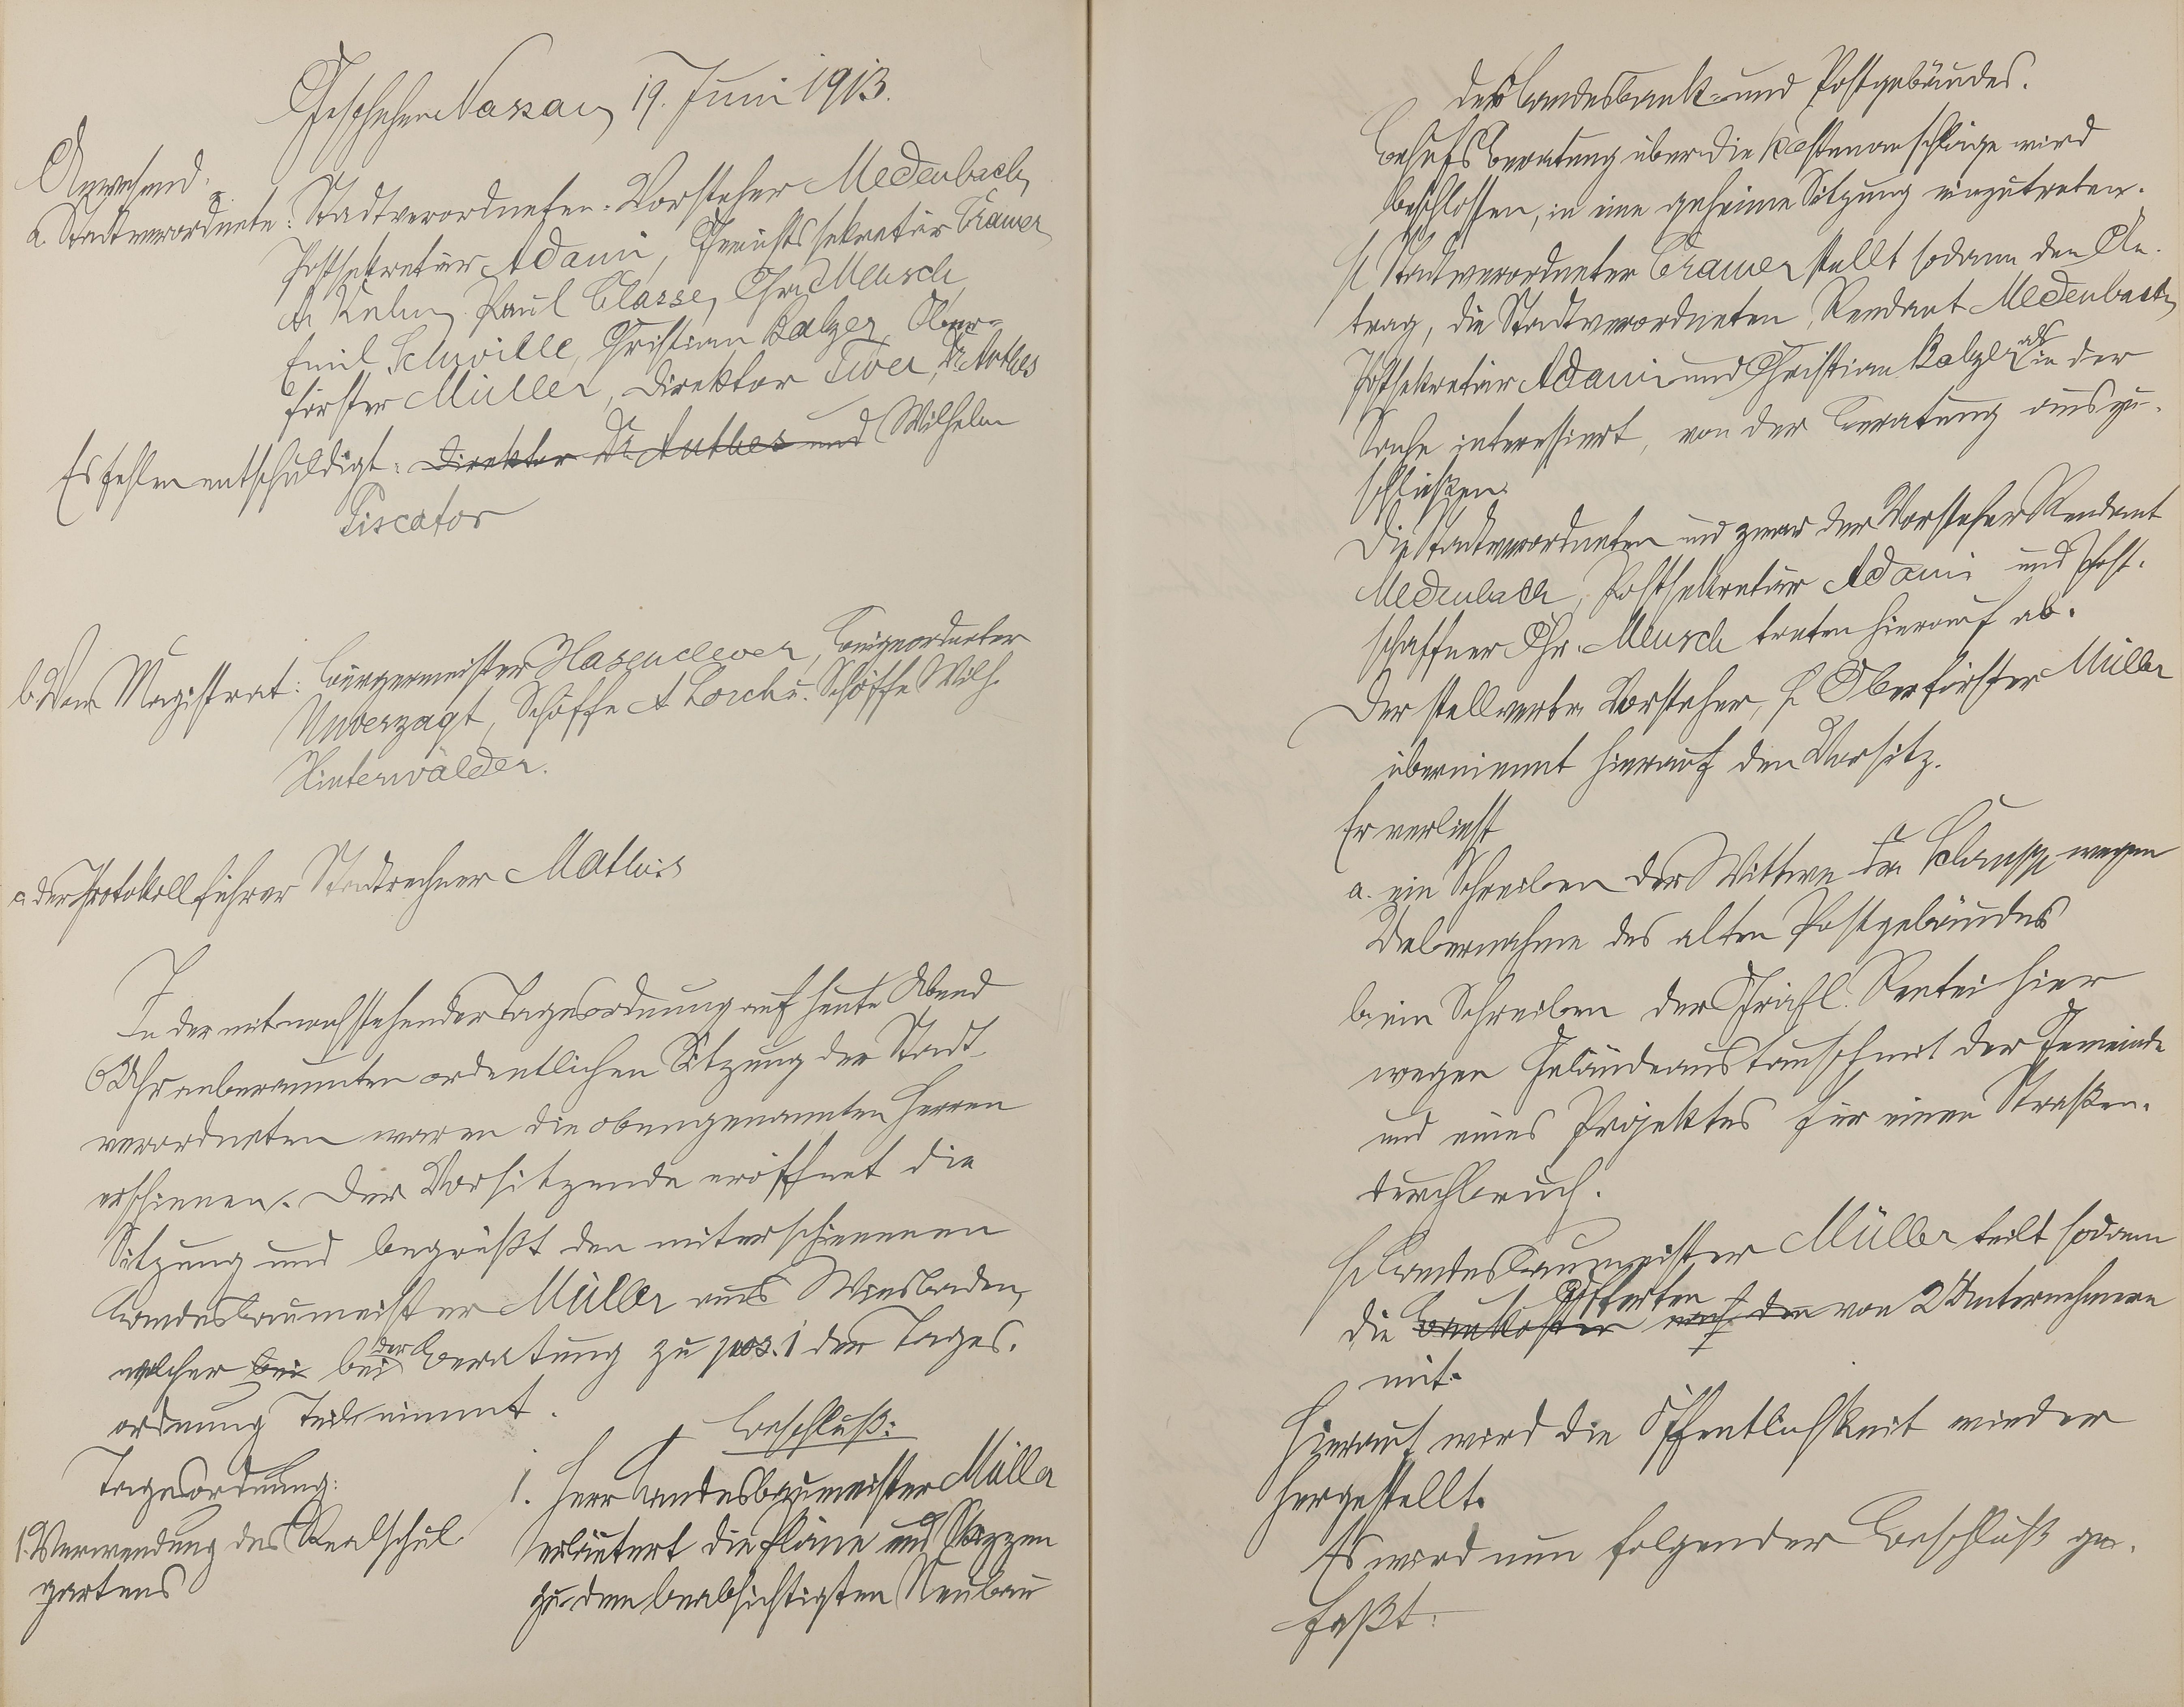 Geschehen Nassau, 19. Juni 1913.
Anwesend:
a. Stadtverordnete: Stadtverordneten-Vorsteher Medenbach,
Postsekretär Adami, Gerichtssekretär Cramer,
A Kuhn, Paul Classe, Chr. Meusch,
Emil Schuville, Christian Balzer, Ober-
förster Müller, Direktor Twer, Dr. Anthes
Es fehlen entschuldigt: Direktor Dr Anthes und Wilhelm
Piscator
b. Vom Magistrat: Bürgermeister Hasenclever, Beigeordneter
Unverzagt, Schöffe A Lorch u. Schöffe Wilh.
Hinterwälder.
c. der Protokollführer Stadtrechner Mathis
In der mit nachstehender Tagesordnung auf heute Abend
6 Uhr anberaumten ordentlichen Sitzung der Stadt-
verordneten waren die obengenannten Herren
erschienen. Der Vorsitzende eröffnet die
Sitzung und begrüßt den miterschienenen
Landesbaumeister Müller aus Wiesbaden,
welcher bei bei der Beratung zu pos. 1 der Tages-
ordnung Teil nimmt.
Beschluß:
Tagesordnung:
1. Verwendung des Realschul-
gartens
1. Herr Landesbaumeister Müller
erläutert die Pläne und Skizzen
zu dem beabsichtigten Neubau
des Landesbank- und Postgebäudes.
Behufs Beratung über die Kostenanschläge wird
beschlossen, in eine geheime Sitzung einzutreten.
H. Stadtverordneter Cramer stellt sodann den An-
trag, die Stadtverordneten, Rendant Medenbach,
Postsekretär Adami und Christian Balzer als in der
Sache interessiert, von der Beratung auszu-
schließen.
Die Stadtverordneten und zwar der Vorsteher Rendant
Medenbach, Postsekretär Adami und Post-
schaffner Chr. Meusch treten hierauf ab.
Der stellvertr. Vorsteher, H. Oberförster Müller
übernimmt hierauf den Vorsitz.
Er verliest
a. ein Schreiben der Wittwe Fr. wegen
Uebernahme des alten Postgebäudes
b. ein Schreiben der Gräfl. Rentei hier
wegen Geländeaustausch mit der Gemeinde
und eines Projektes für einen Straßen-
durchbruch.
H. Landesbaumeister Müller teilt sodann
die Baukosten Offerten nach den von 2 Unternehmern
mit.
Hierauf wird die Öffentlichkeit wieder
hergestellt.
Es wird nun folgender Beschluß ge-
faßt: